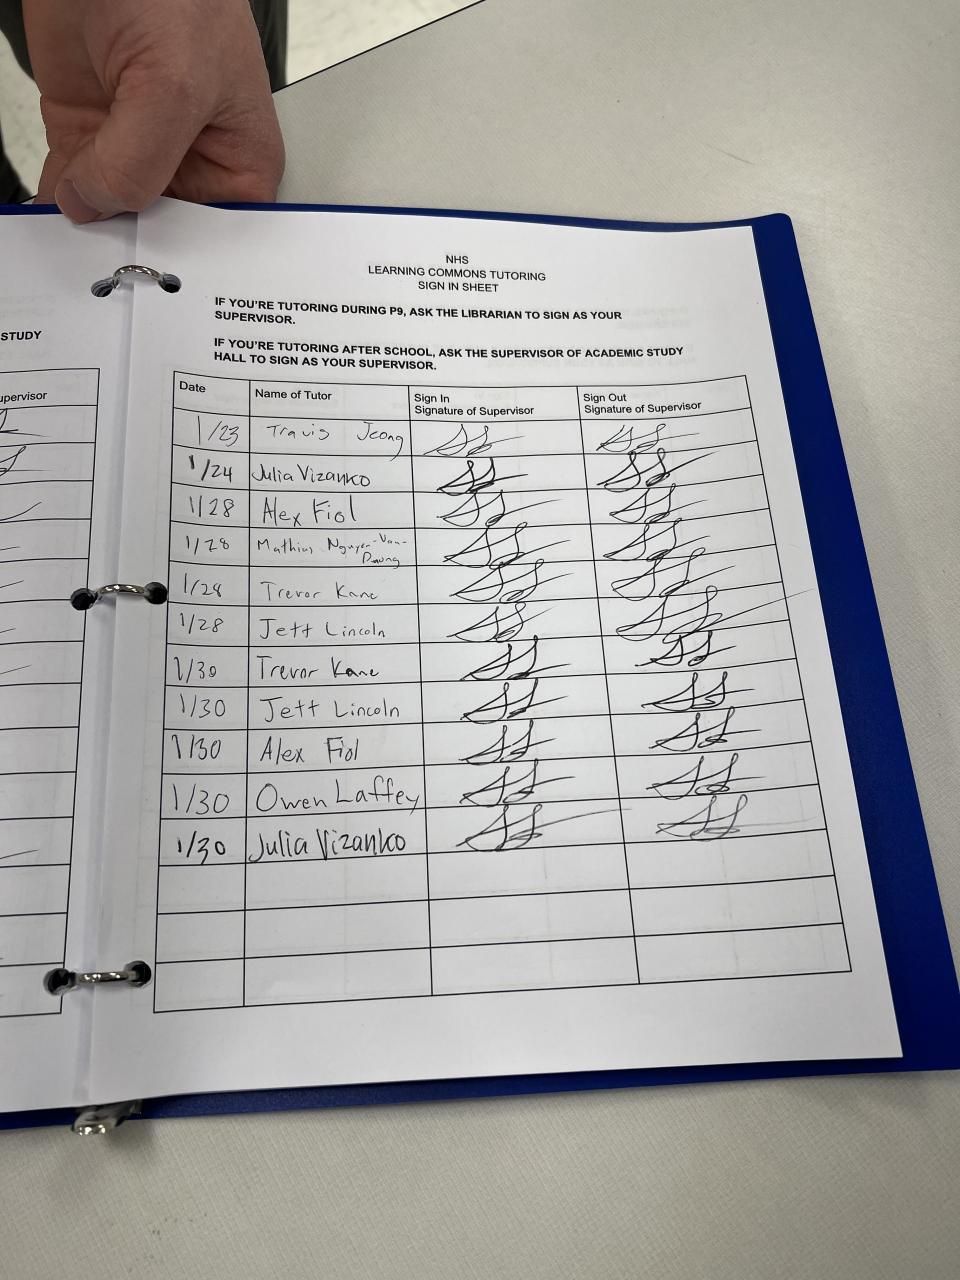 NHS
LEARNING COMMONS TUTORING
SIGN IN SHEET
IF YOU'RE TUTORING DURING P9, ASK THE LIBRARIAN TO SIGN AS YOUR
SUPERVISOR.
IF YOU'RE TUTORING AFTER SCHOOL, ASK THE SUPERVISOR OF ACADEMIC STUDY
HALL TO SIGN AS YOUR SUPERVISOR.
STUDY
upervisor
Date Name of Tutor Sign In Signature of Supervisor Sign Out Signature of Supervisor
1/23 Travis Jeong
1/24 Julia Vizanko
1/28 Alex Fiol
1/28 Mathias Nguyen-Van-
Duong
1/28 Trevor Kane
1/28 Jett Lincoln
1/30 Trevor Kane
1/30 Jett Lincoln
1/30 Alex Fiol
1/30 Owen Laffey
1/30 Julia Vizanko